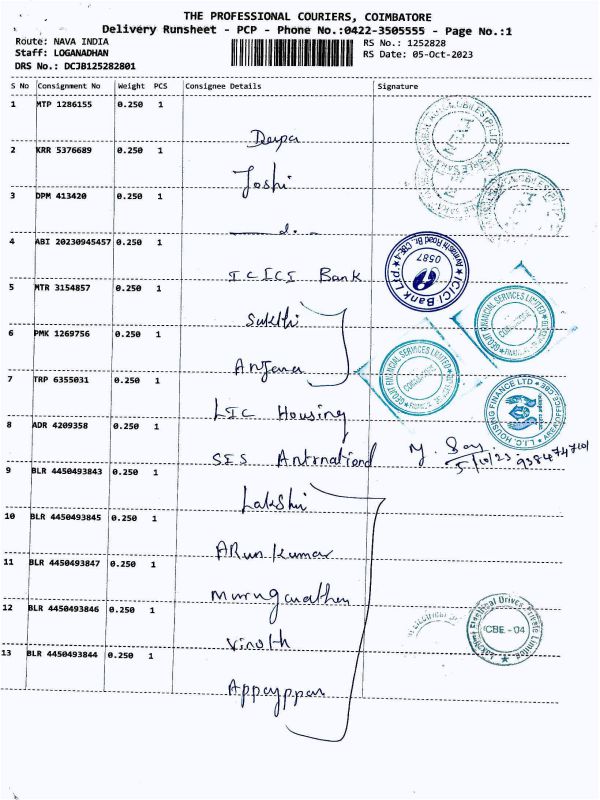 THE PROFESSIONAL COURIERS, COIMBATORE
Delivery Runsheet - PCP - Phone No.:0422-3505555 - Page No.:1
Route: NAVA INDIA RS No.: 1252828
Staff: LOGANADHAN RS Date: 05-Oct-2023
DRS No.: DCJB125282801
S No Consignment No Weight PCS Consignee Details Signature
1 MTP 1286155 0.250 1 Deepa
2 KRR 5376689 0.250 1 Joshi
3 DPM 413420 0.250 1 —— d. –
4 ABI 20230945457 0.250 1 ICICI Bank
ICICI Bank Ltd Avinashi Road Br. CBE-4 0587
5 MTR 3154857 0.250 1 Sakthi
GEOJIT FINANCIAL SERVICES LIMITED
6 PMK 1269756 0.250 1 Anjana
GEOJIT FINANCIAL SERVICES LIMITED
7 TRP 6355031 0.250 1 LIC Housing
L.I.C. HOUSING FINANCE LTD AREA OFFICE CBE
8 ADR 4209358 0.250 1 SES Antrnationd
5/10/23
9 BLR 4450493843 0.250 1 Lakshi
10 BLR 4450493845 0.250 1 ARun kumar
11 BLR 4450493847 0.250 1 Muruganathan
12 BLR 4450493846 0.250 1 Vinoth
Electrical Drives Private Limited CBE - 04
13 BLR 4450493844 0.250 1 Appayppan